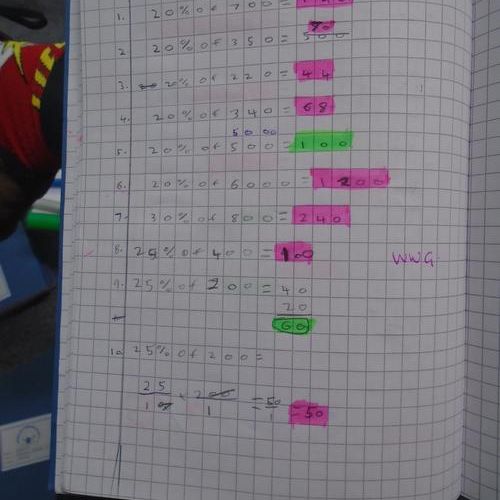 1. 20% of 700 = 140
70
2 20% of 350 = 300
3. 20% of 220 = 44
4. 20% of 340 = 68
50 00
5. 20% of 500 = 100
6. 20% of 6000 = 1200
7. 30% of 800 = 240
8. 25% of 400 = 100 WWG
9. 25% of 200 = 40
20
60
10 25% of 200 =
25 200 50
100 × 1 = 1 = 50